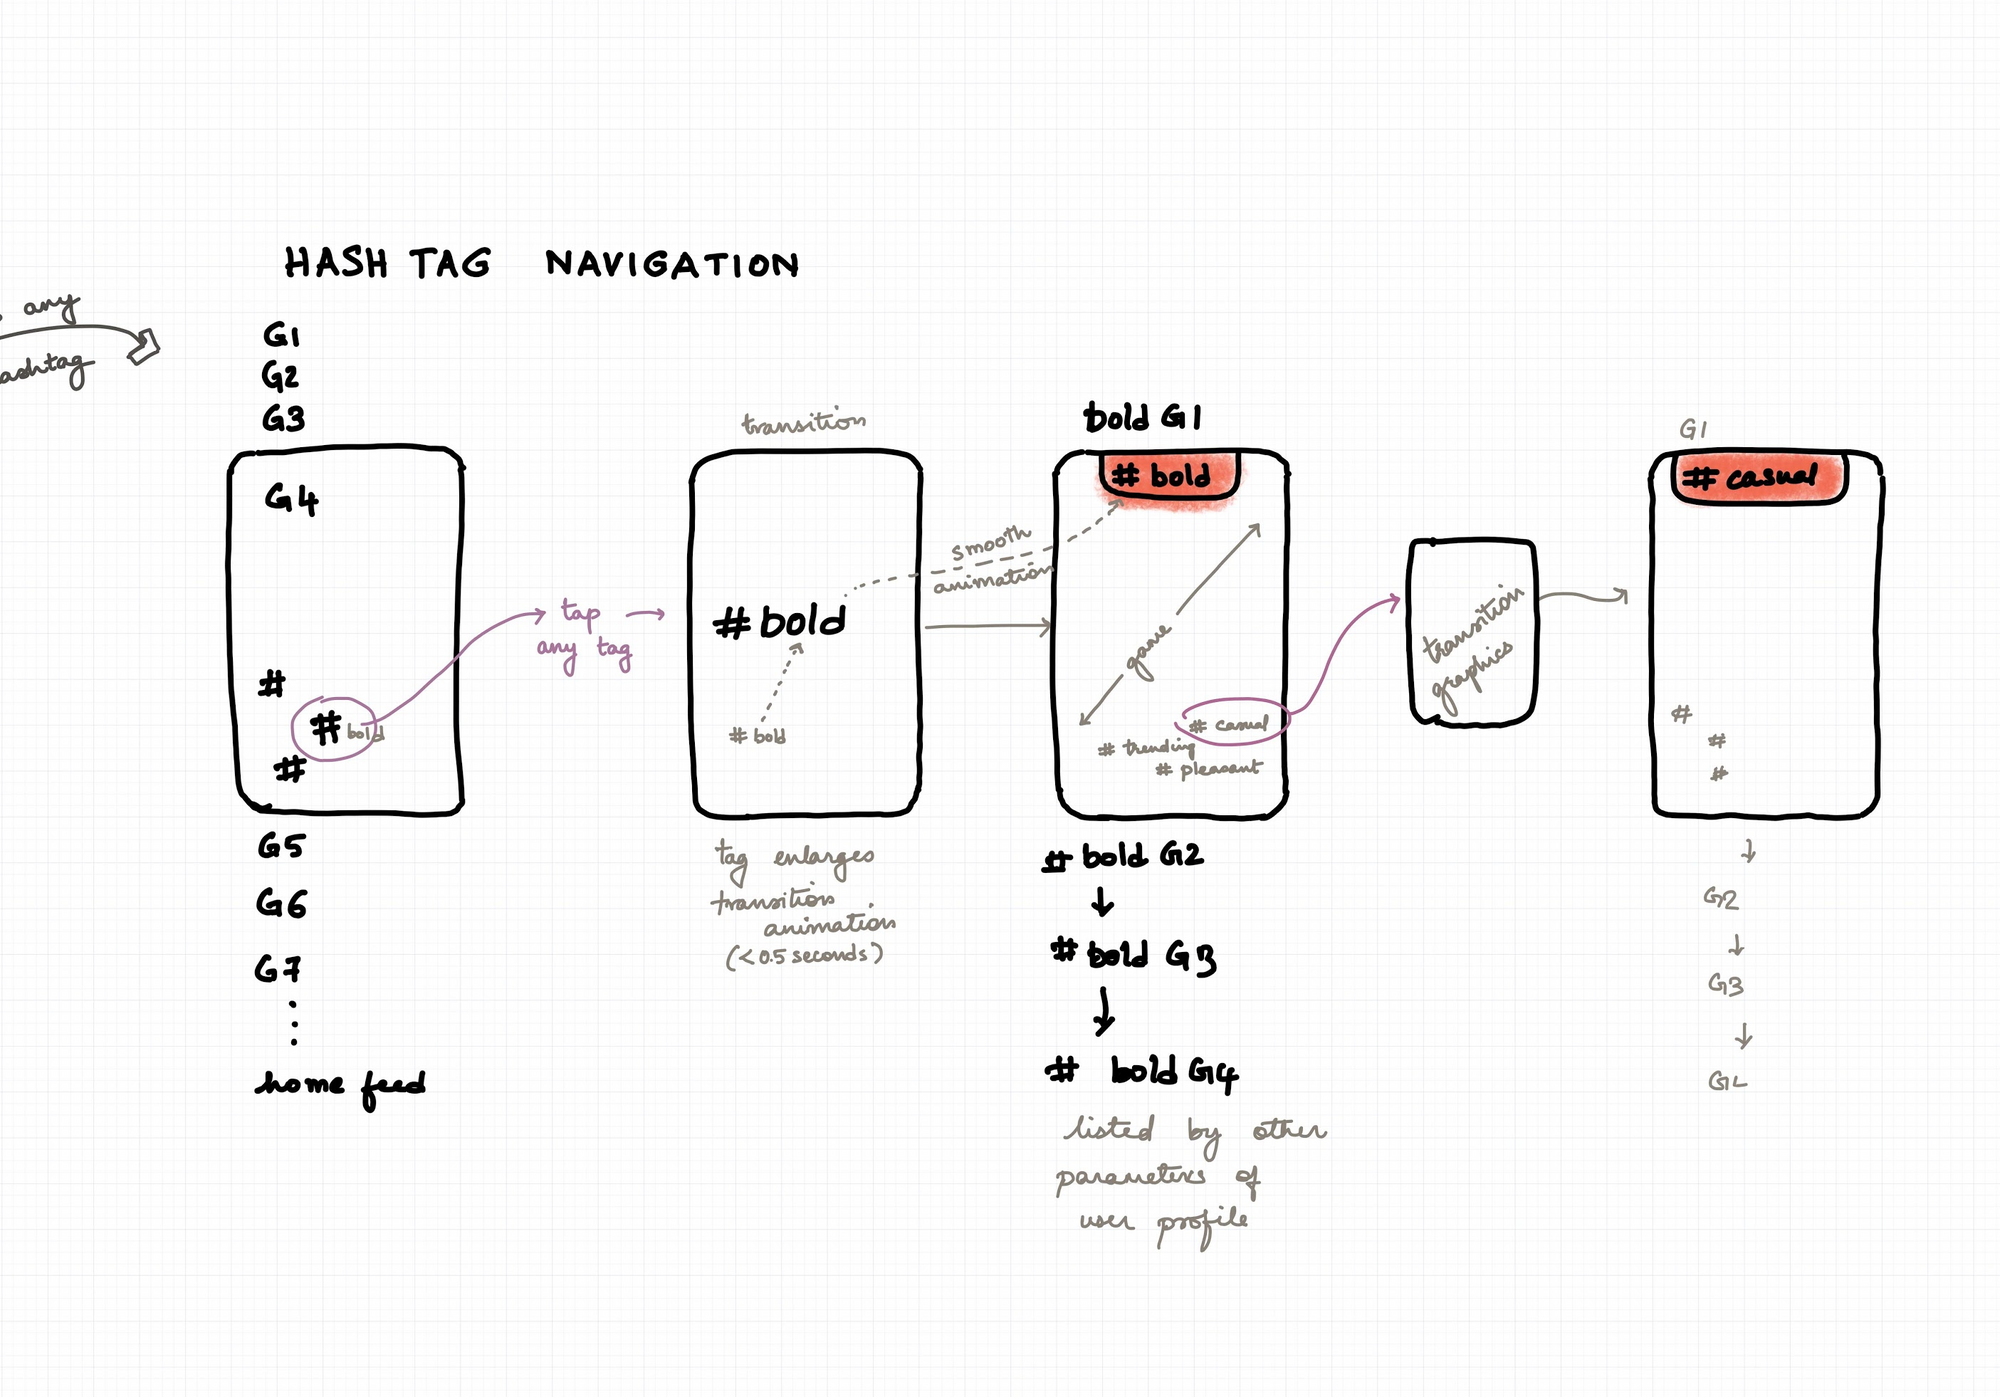 HASH TAG NAVIGATION
any
ashtag
G1
G2
G3
G4
#
# bold
#
G5
G6
G7
home feed
tap
any tag
transition
# bold
# bold
tag enlarges
transition
animation
(<0.5 seconds)
smooth
animation
bold G1
# bold
game
# casual
# trending
# pleasant
# bold G2
# bold G3
# bold G4
listed by other
parameters of
user profile
transition
graphics
G1
# casual
#
#
#
G2
G3